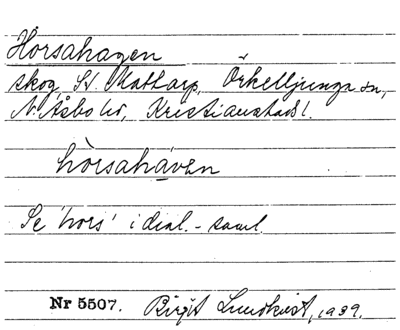 Horsahagen
skog, Sv. Mattarp, Örkelljunga sn,
N. Åsbo hd, Kristianstads l.
hòrsahàven
Se 'hors' i dial.-saml.
Nr 5507. Birgit Lundkvist, 1939.